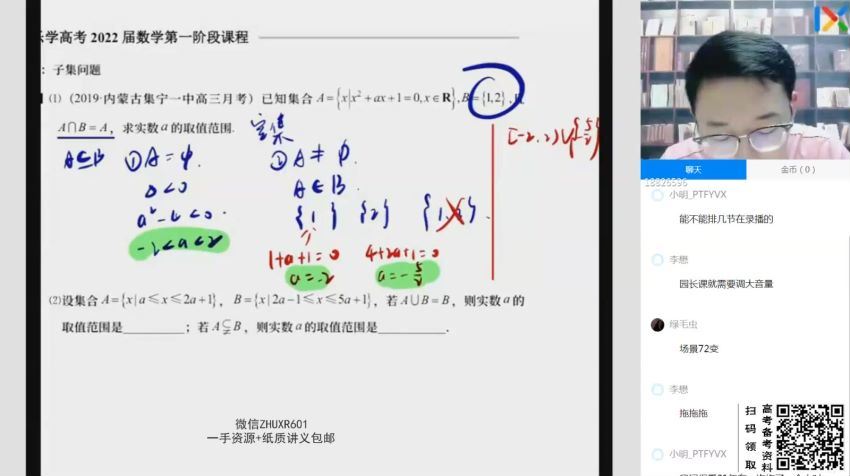 乐学高考 2022 届数学第一阶段课程
：子集问题
(1) (2019·内蒙古集宁一中高三月考) 已知集合 A={x|x²+ax+1=0,x∈R},B={1,2},且
A∩B=A，求实数 a 的取值范围.
空集
A⊆B ①A=φ. ②A≠φ
Δ<0 A⊆B.
a²-4<0. {1} {2} {1,2}.
-2<a<2
1+a+1=0 4+2a+1=0
a=-2 a=-5/2
[-2,2)∪{-5/2}
(2)设集合 A={x|a≤x≤2a+1}，B={x|2a-1≤x≤5a+1}，若 A∪B=B，则实数 a 的
取值范围是；若 A⫋B，则实数 a 的取值范围是.
微信ZHUXR601
一手资源+纸质讲义包邮
聊天
金币（0）
18826596
小明_PTFYVX
能不能排几节在录播的
李懋
园长课就需要调大音量
绿毛虫
场景72变
李懋
拖拖拖
小明_PTFYVX
扫码领取
高考备考资料